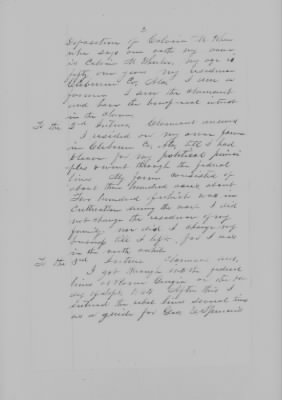 2
Deposition of Calvin M Wheeler
who says on oath my name
is Calvin M Wheeler, my age is
fifty one years my residence
Cleburne Co, Ala, I am a
farmer I am the claimant
and have the beneficial interest
in the claim
To the 2nd Interro. Claimant answers
I resided on my own farm
in Cleburne Co, Ala, till I had
to leave for my political princi
ples & went through the federal
lines. My farm consisted of
about three hundred acres about
Two hundred of which was in
cultivation during the war. I did
not change the residence of my
family nor did I change my
business till I left, for I was
in the
To the 3rd Interro Claimant ans,
I got through into the federal
lines at Rome Georgia on the
day of Sept. 1864 After this I
entered the rebel lines several times
as a guide for Gen.